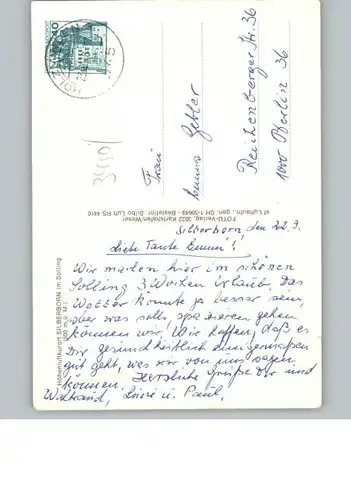 40
HOLZMINDEN
3450
Frau
Emma Gebler
Reichenberger Str. 36
1000 Berlin 36
Höhenluftkurort SILBERBORN im Solling
FOTU-Verlag, 3522 Karlshafen/Weser
Silberborn den 22.9.
Liebe Tante Emmi!
Wir machen hier im schönen
Solling 3 Wochen Urlaub. Das
Wetter könnte ja besser sein,
aber was solls spazieren gehen
können wir. Wir hoffen, daß es
Dir gesundheitlich einigermaßen
gut geht, was wir von uns sagen
können. Herzliche Grüße Dir und
Waltraud, u. Paul.